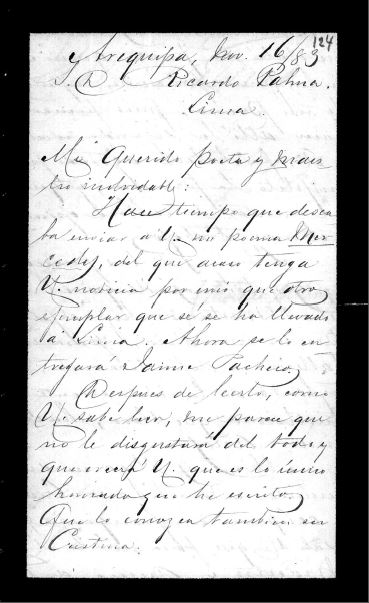 124
Arequipa, Nov. 16/83
S. D. Ricardo Palma.
Lima.
Mi Querido poeta y maes
tro inolvidable:
Hace tiempo que desea
ba enviar a U. mi poema Mer
cedes, del que acaso tenga
U. noticia por uno que otro
ejemplar que sé se ha llevado
á Lima. Ahora se lo en
tregará Jaime Pacheco.
Despues de leerlo, como
U. sabe leer, me parece que
no le disgustara del todo y
que creerá U. que es lo único
honrado que he escrito.
Que lo conozca tambien
Cristina.